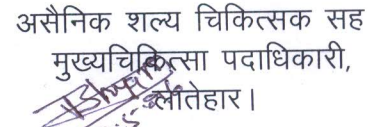 असैनिक शल्य चिकित्सक सह
मुख्यचिकित्सा पदाधिकारी,
लातेहार।